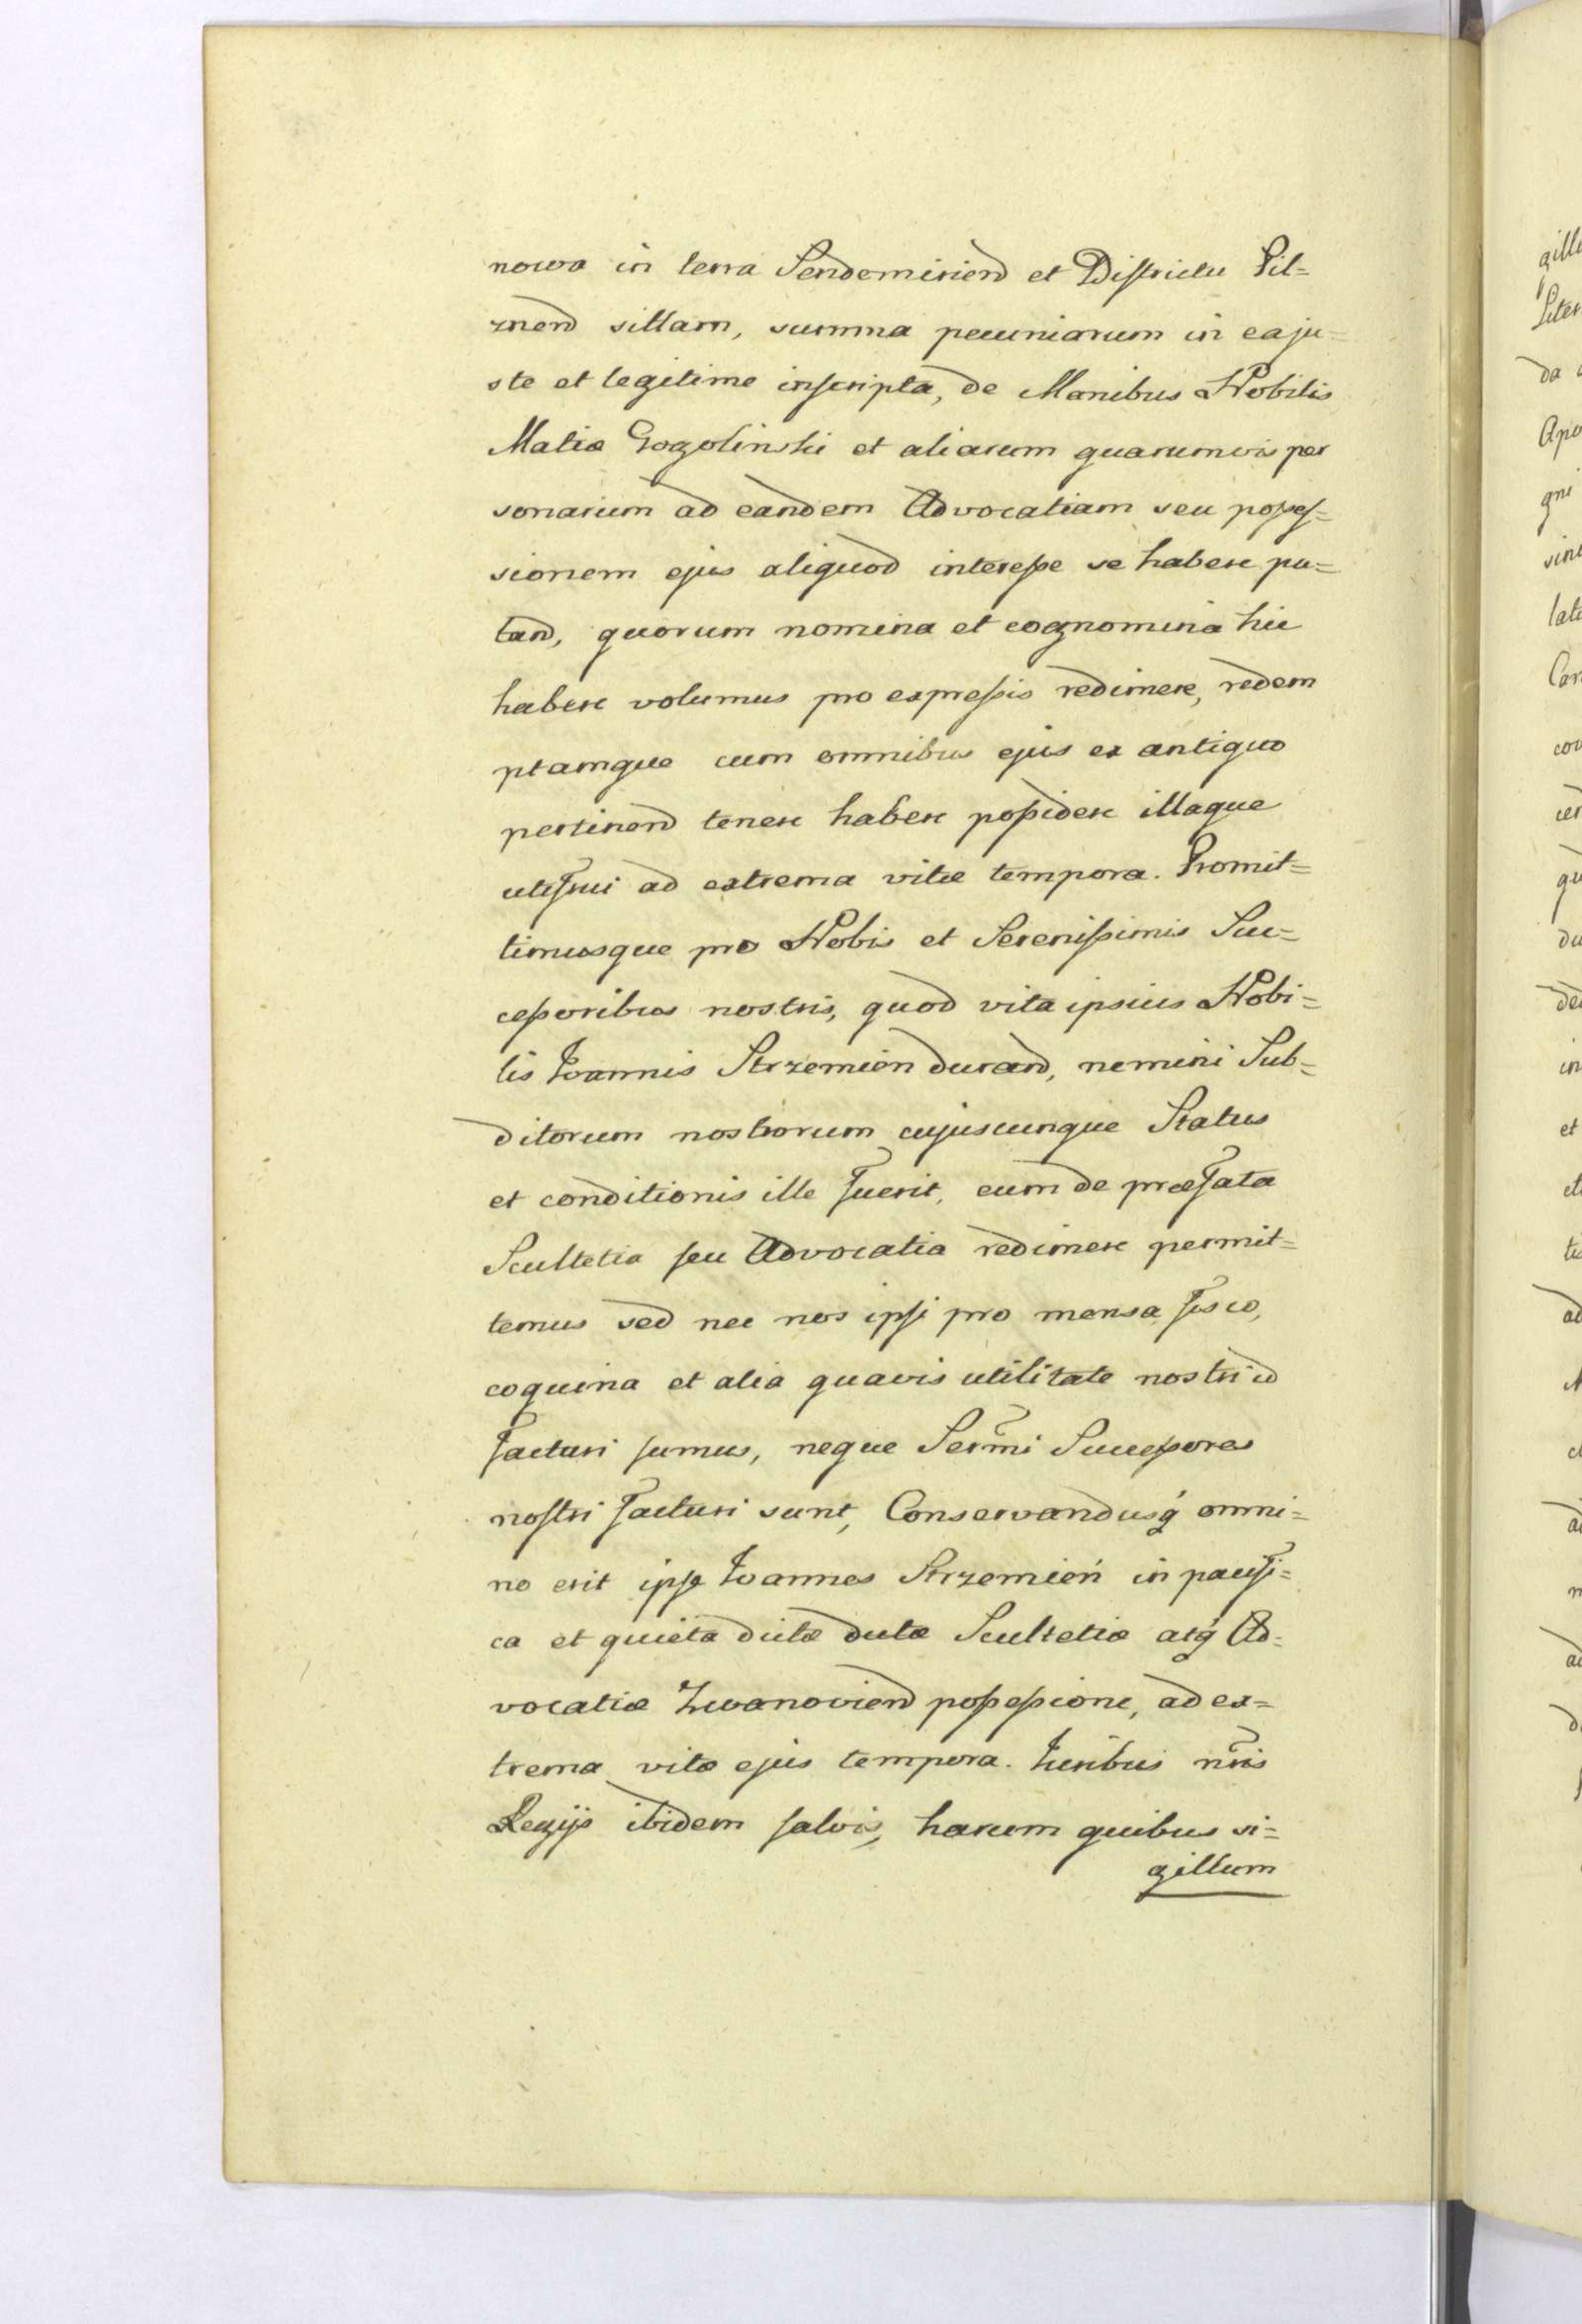 nowa in terra Sendomiriend et Districtu Pil=
znend sittam, summa pecuniarum in ea ju=
ste et legitime inscripta, de Manibus Nobilis
Matiæ Gogolinski et aliarum quarumvis per
sonarum ad eandem Advocatiam seu posses=
sionem ejus aliquod interesse se habere pu=
tand, quorum nomina et cognomina hic
habere volumus pro expressis redimere, redem
ptamque cum omnibus ejus ex antiquo
pertinend tenere habere possidere illaque
uti frui ad extrema vitæ tempora. Promit=
timusque pro Nobis et Serenissimis Suc=
cessoribus nostris, quod vita ipsius Nobi=
lis Joannis Strzemien durand, nemini Sub=
ditorum nostrorum cujuscunque Status
et conditionis ille fuerit, eum de præfata
Scultetia seu Advocatia redimere permit=
temus sed nec nos ipsi pro mensa fisco,
coquina et alia quavis utilitate nostri id
facturi sumus, neque Sermi Successores
nostri facturi sunt, Conservandusq́ omni=
no erit ipse Joannes Strzemień in pacifi=
ca et quieta dictæ dictæ Scultetiæ atq́ Ad=
vocatiæ Zwanoviend possessione, ad ex=
trema vitæ ejus tempora. Juribus nris
Regijs ibidem salvis, harum quibus si=
gillum